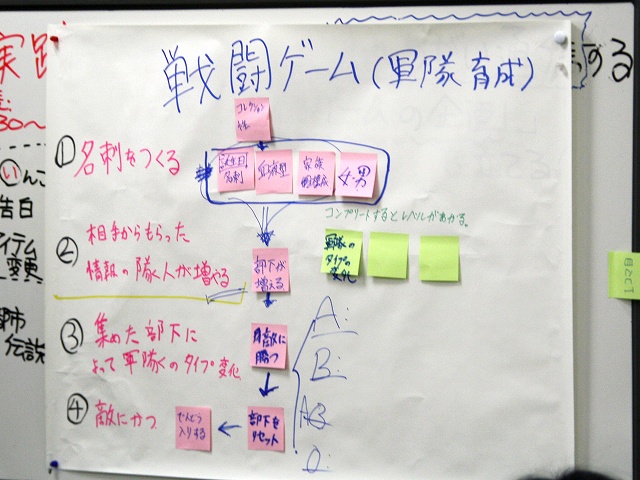 戦闘ゲーム(軍隊育成)
コレクション
性
① 名刺をつくる
誕生日
名刺
血液型
家族
構成
女・男
コンプリートするとレベルがあがる。
② 相手からもらった
情報の隊人が増やる
部下が
増える
軍隊の
タイプの
変化
③ 集めた部下に
よって軍隊のタイプ変化
敵に
勝つ
A:
B:
AB
O:
④ 敵にかつ
でんどう
入りする
部下を
リセット
実践
30～
い
んこ
告白
アイテム
変更
都市
伝説
する